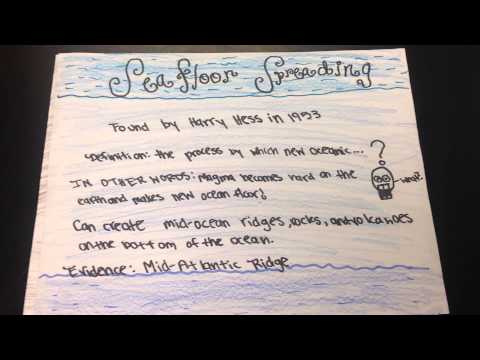 Seafloor Spreading
Found by Harry Hess in 1953
Definition: the process by which new oceanic... ?
IN OTHER WORDS: Magma becomes hard on the
earth and makes new ocean floor!
Can create mid-ocean ridges, rocks, and volcanoes
on the bottom of the ocean.
Evidence: Mid-Atlantic Ridge